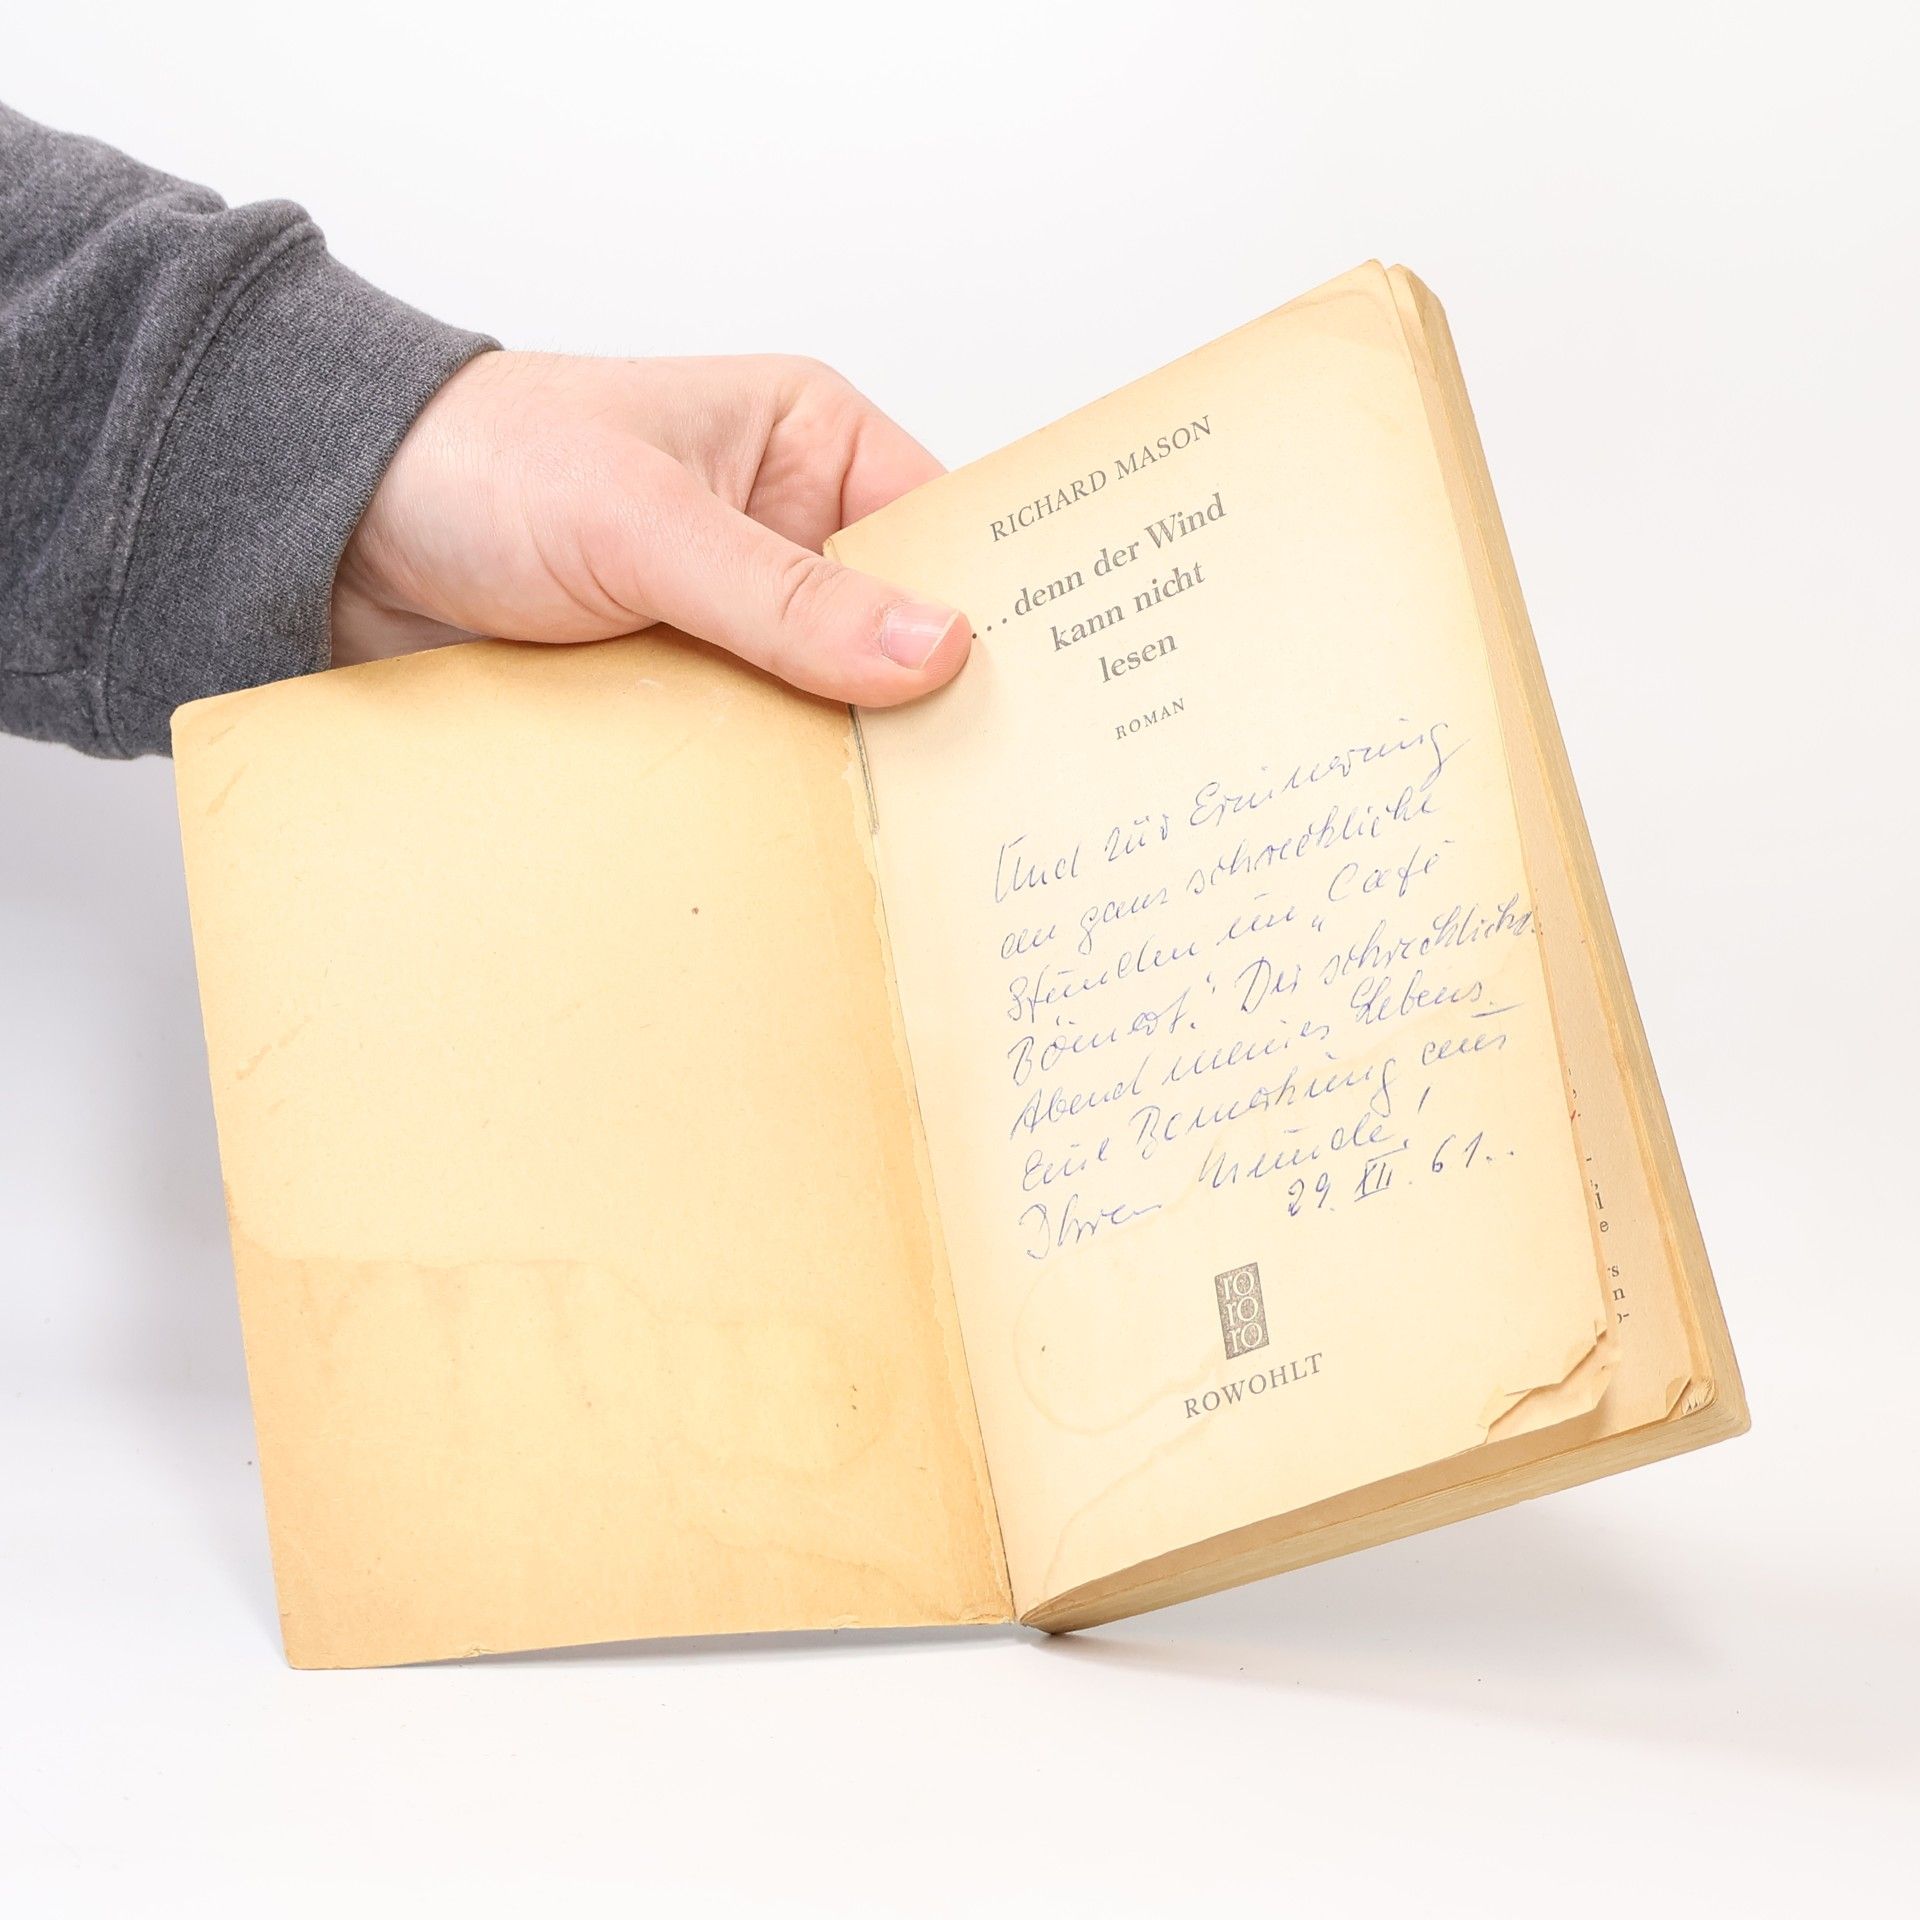 RICHARD MASON
...denn der Wind
kann nicht
lesen
ROMAN
Und zur Erinnerung
an ganz schreckliche
Stunden im „Café
Der schrecklichste
Abend meines Lebens.
Eine Bemerkung aus
Ihrem Munde!
29. XII. 61..
ro
ro
ro
ROWOHLT